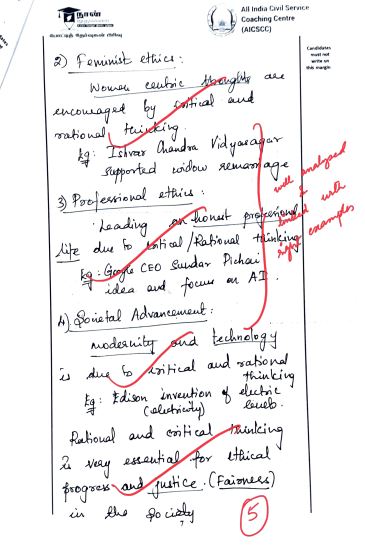 நான் முதல்வன்
All India Civil Service
Coaching Centre
(AICSCC)
Candidates
must not
write on
this margin
2) Feminist ethics:
Women centric thoughts are
encouraged by critical and
rational thinking.
Eg: Ishvar Chandra Vidyasagar
supported widow remarriage
3) Professional ethics:
Leading an honest professional
life due to critical/Rational thinking
Eg: Google CEO Sundar Pichai
idea and focus on AI
well analysed
&
ended with
right examples
4) Societal Advancement:
modernity and technology
is due to critical and rational
thinking
Eg: Edison invention of electric
(electricity) bulb.
Rational and critical thinking
is very essential for ethical
progress and justice. (Fairness)
in the society
5